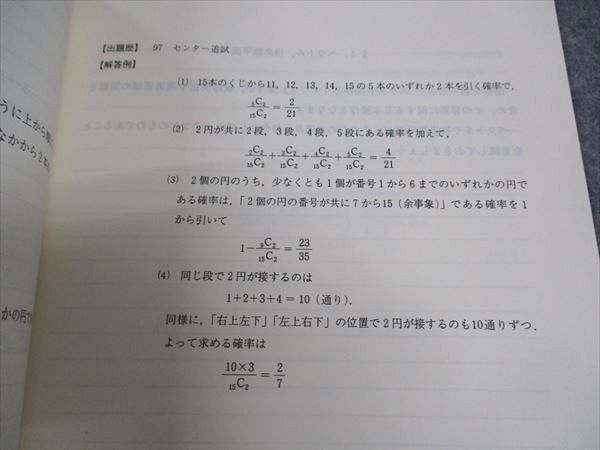 【出題歴】 97 センター追試
【解答例】
(1) 15本のくじから11, 12, 13, 14, 15の5本のいずれか2本を引く確率で,
₅C₂/₁₅C₂ = 2/21
(2) 2円が共に2段, 3段, 4段, 5段にある確率を加えて,
₂C₂/₁₅C₂ + ₃C₂/₁₅C₂ + ₄C₂/₁₅C₂ + ₅C₂/₁₅C₂ = 4/21
(3) 2個の円のうち, 少なくとも1個が番号1から6までのいずれかの円で
ある確率は,「2個の円の番号が共に7から15(余事象)」である確率を1
から引いて
1 − ₉C₂/₁₅C₂ = 23/35
(4) 同じ段で2円が接するのは
1+2+3+4 = 10 (通り).
同様に,「右上左下」「左上右下」の位置で2円が接するのも10通りずつ.
よって求める確率は
10×3/₁₅C₂ = 2/7
うに上から
なかから2本
かの円で